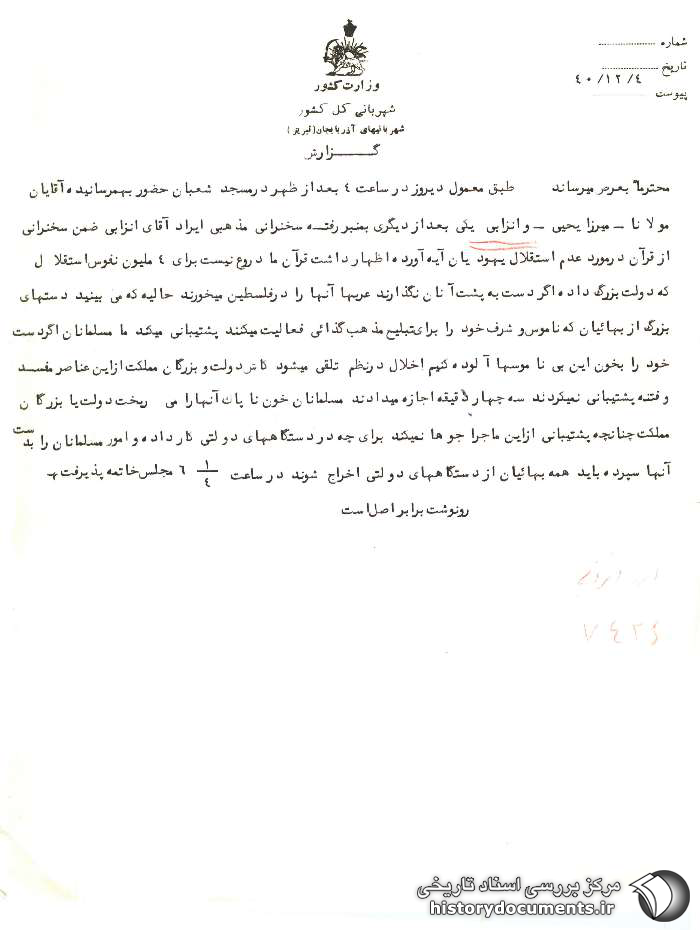 شماره
تاریخ ۴۰/۱۲/۴
پیوست
وزارت کشور
شهربانی کل کشور
شهربانیهای آذربایجان (تبریز)
گزارش
محترماً بعرض میرساند طبق معمول دیروز در ساعت ۴ بعد از ظهر در مسجد شعبان حضور بهمرسانیده آقایان
مولانا ـ میرزا یحیی ـ وانزابی یکی بعد از دیگری بمنبر رفته سخنرانی مذهبی ایراد آقای انزابی ضمن سخنرانی
از قرآن در مورد عدم استقلال یهودیان آیه آورده اظهار داشت قرآن ما دروغ نیست برای ۴ ملیون نفوس استقلال
که دولت بزرگ داده اگر دست به پشت آنان نگذارند عربها آنها را در فلسطین میخورند حالیه که می بینید دستهای
بزرگ از بهائیان که ناموس و شرف خود را برای تبلیغ مذهب گذائی فعالیت میکنند پشتیبانی میکند ما مسلمانان اگر دست
خود را بخون این بی ناموسها آلوده کنیم اخلال در نظم تلقی میشود کاش دولت و بزرگان مملکت از این عناصر مفسد
و فتنه پشتیبانی نمیکردند سه چهار دقیقه اجازه میدادند مسلمانان خون ناپاک آنها را می ریخت دولت یا بزرگان
مملکت چنانچه پشتیبانی از این ماجراجوها نمیکند برای چه در دستگاههای دولتی کار داده و امور مسلمانان را بدست
آنها سپرده باید همه بهائیان از دستگاههای دولتی اخراج شوند در ساعت ۶ ۱/۴ مجلس خاتمه پذیرفت
رونوشت برابر اصل است
مرکز بررسی اسناد تاریخی
historydocuments.ir